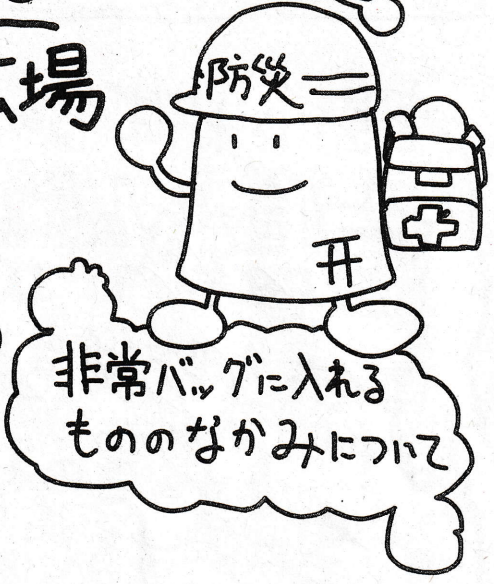 場
防災
开
非常バッグに入れる
もののなかみについて